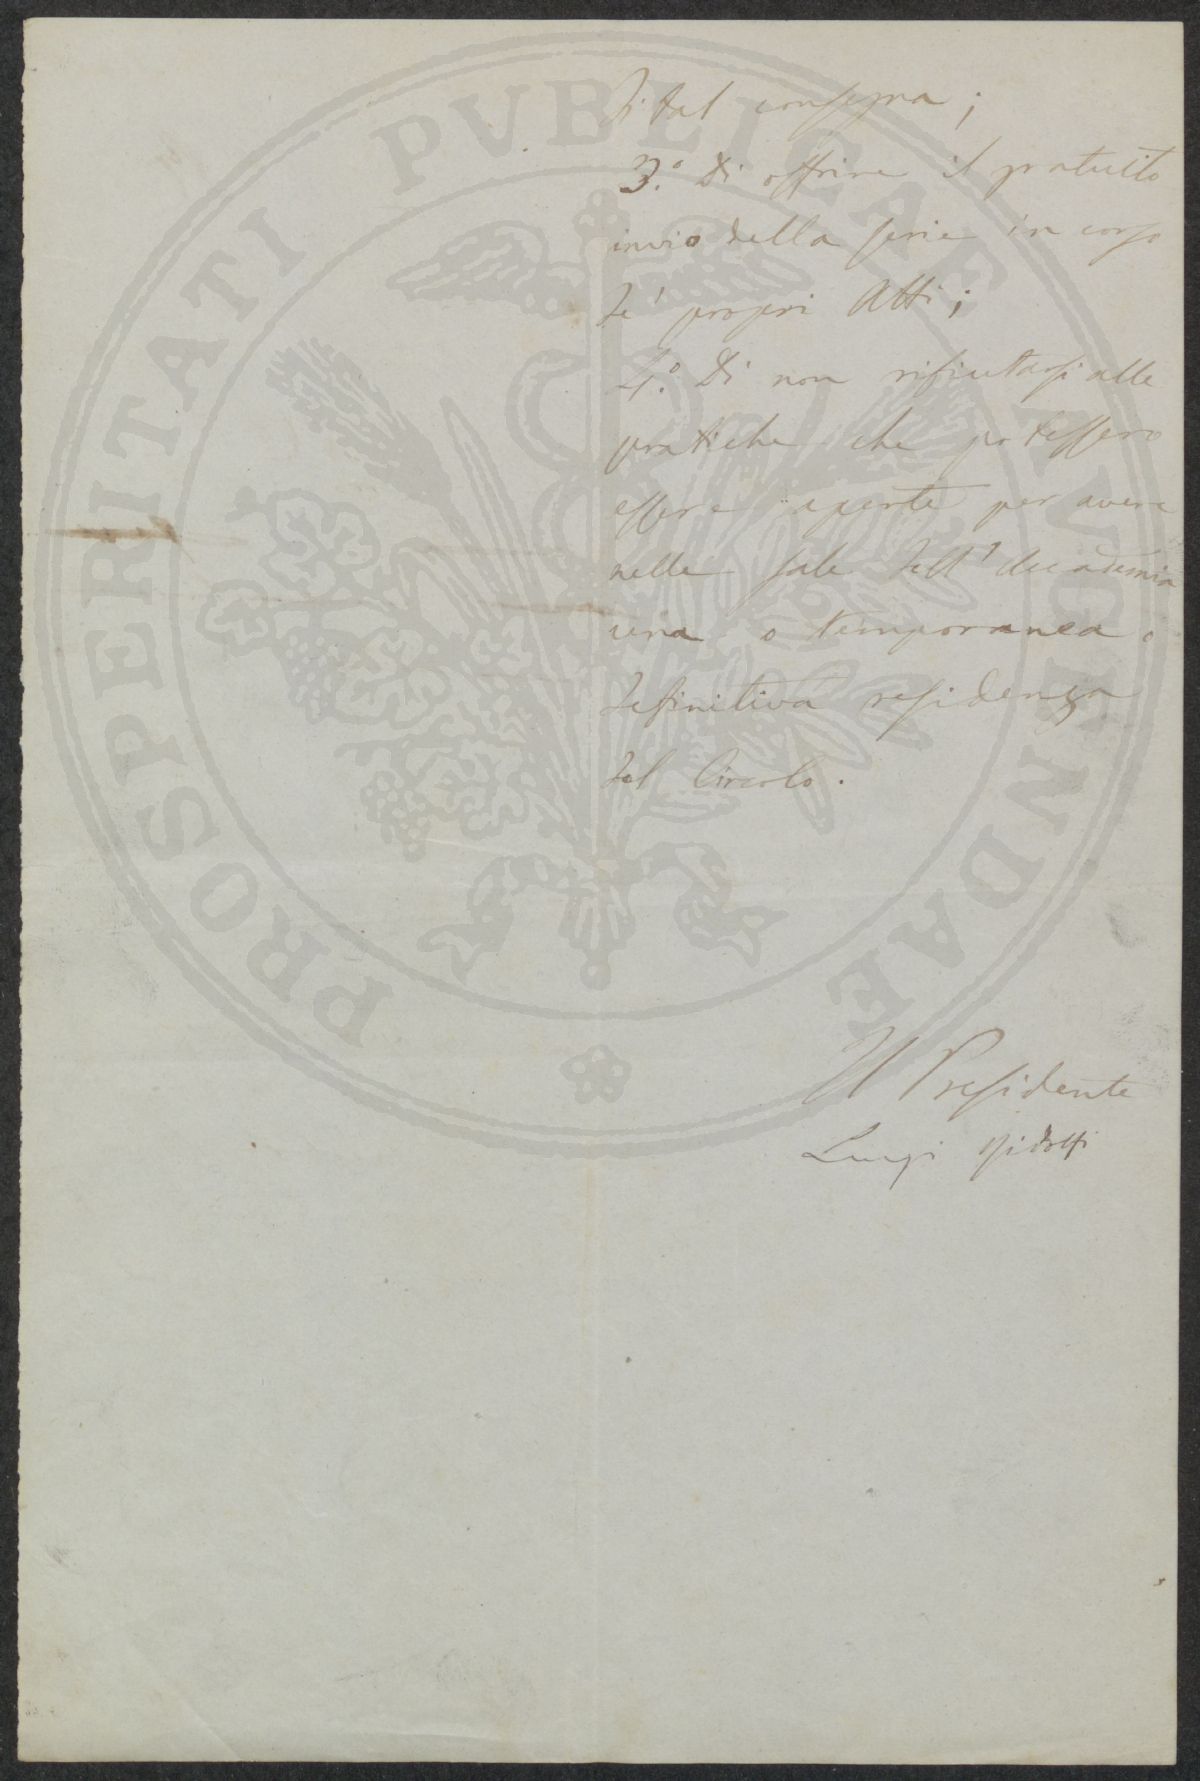 di tal consegna;
3.º Di offrire il gratuito
invio della serie in corso
de' propri Atti;
4.º Di non rifiutarsi alle
pratiche che potessero
essere aperte per avere
nelle sale dell'Accademia
una o temporanea o
definitiva residenza
del Circolo.
Il Presidente
Luigi Ridolfi
PROSPERITATI PVBLICAE AVGENDAE